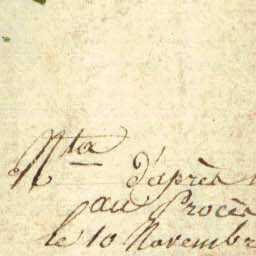 Nta d'après
au Procès
le 10 Novembr